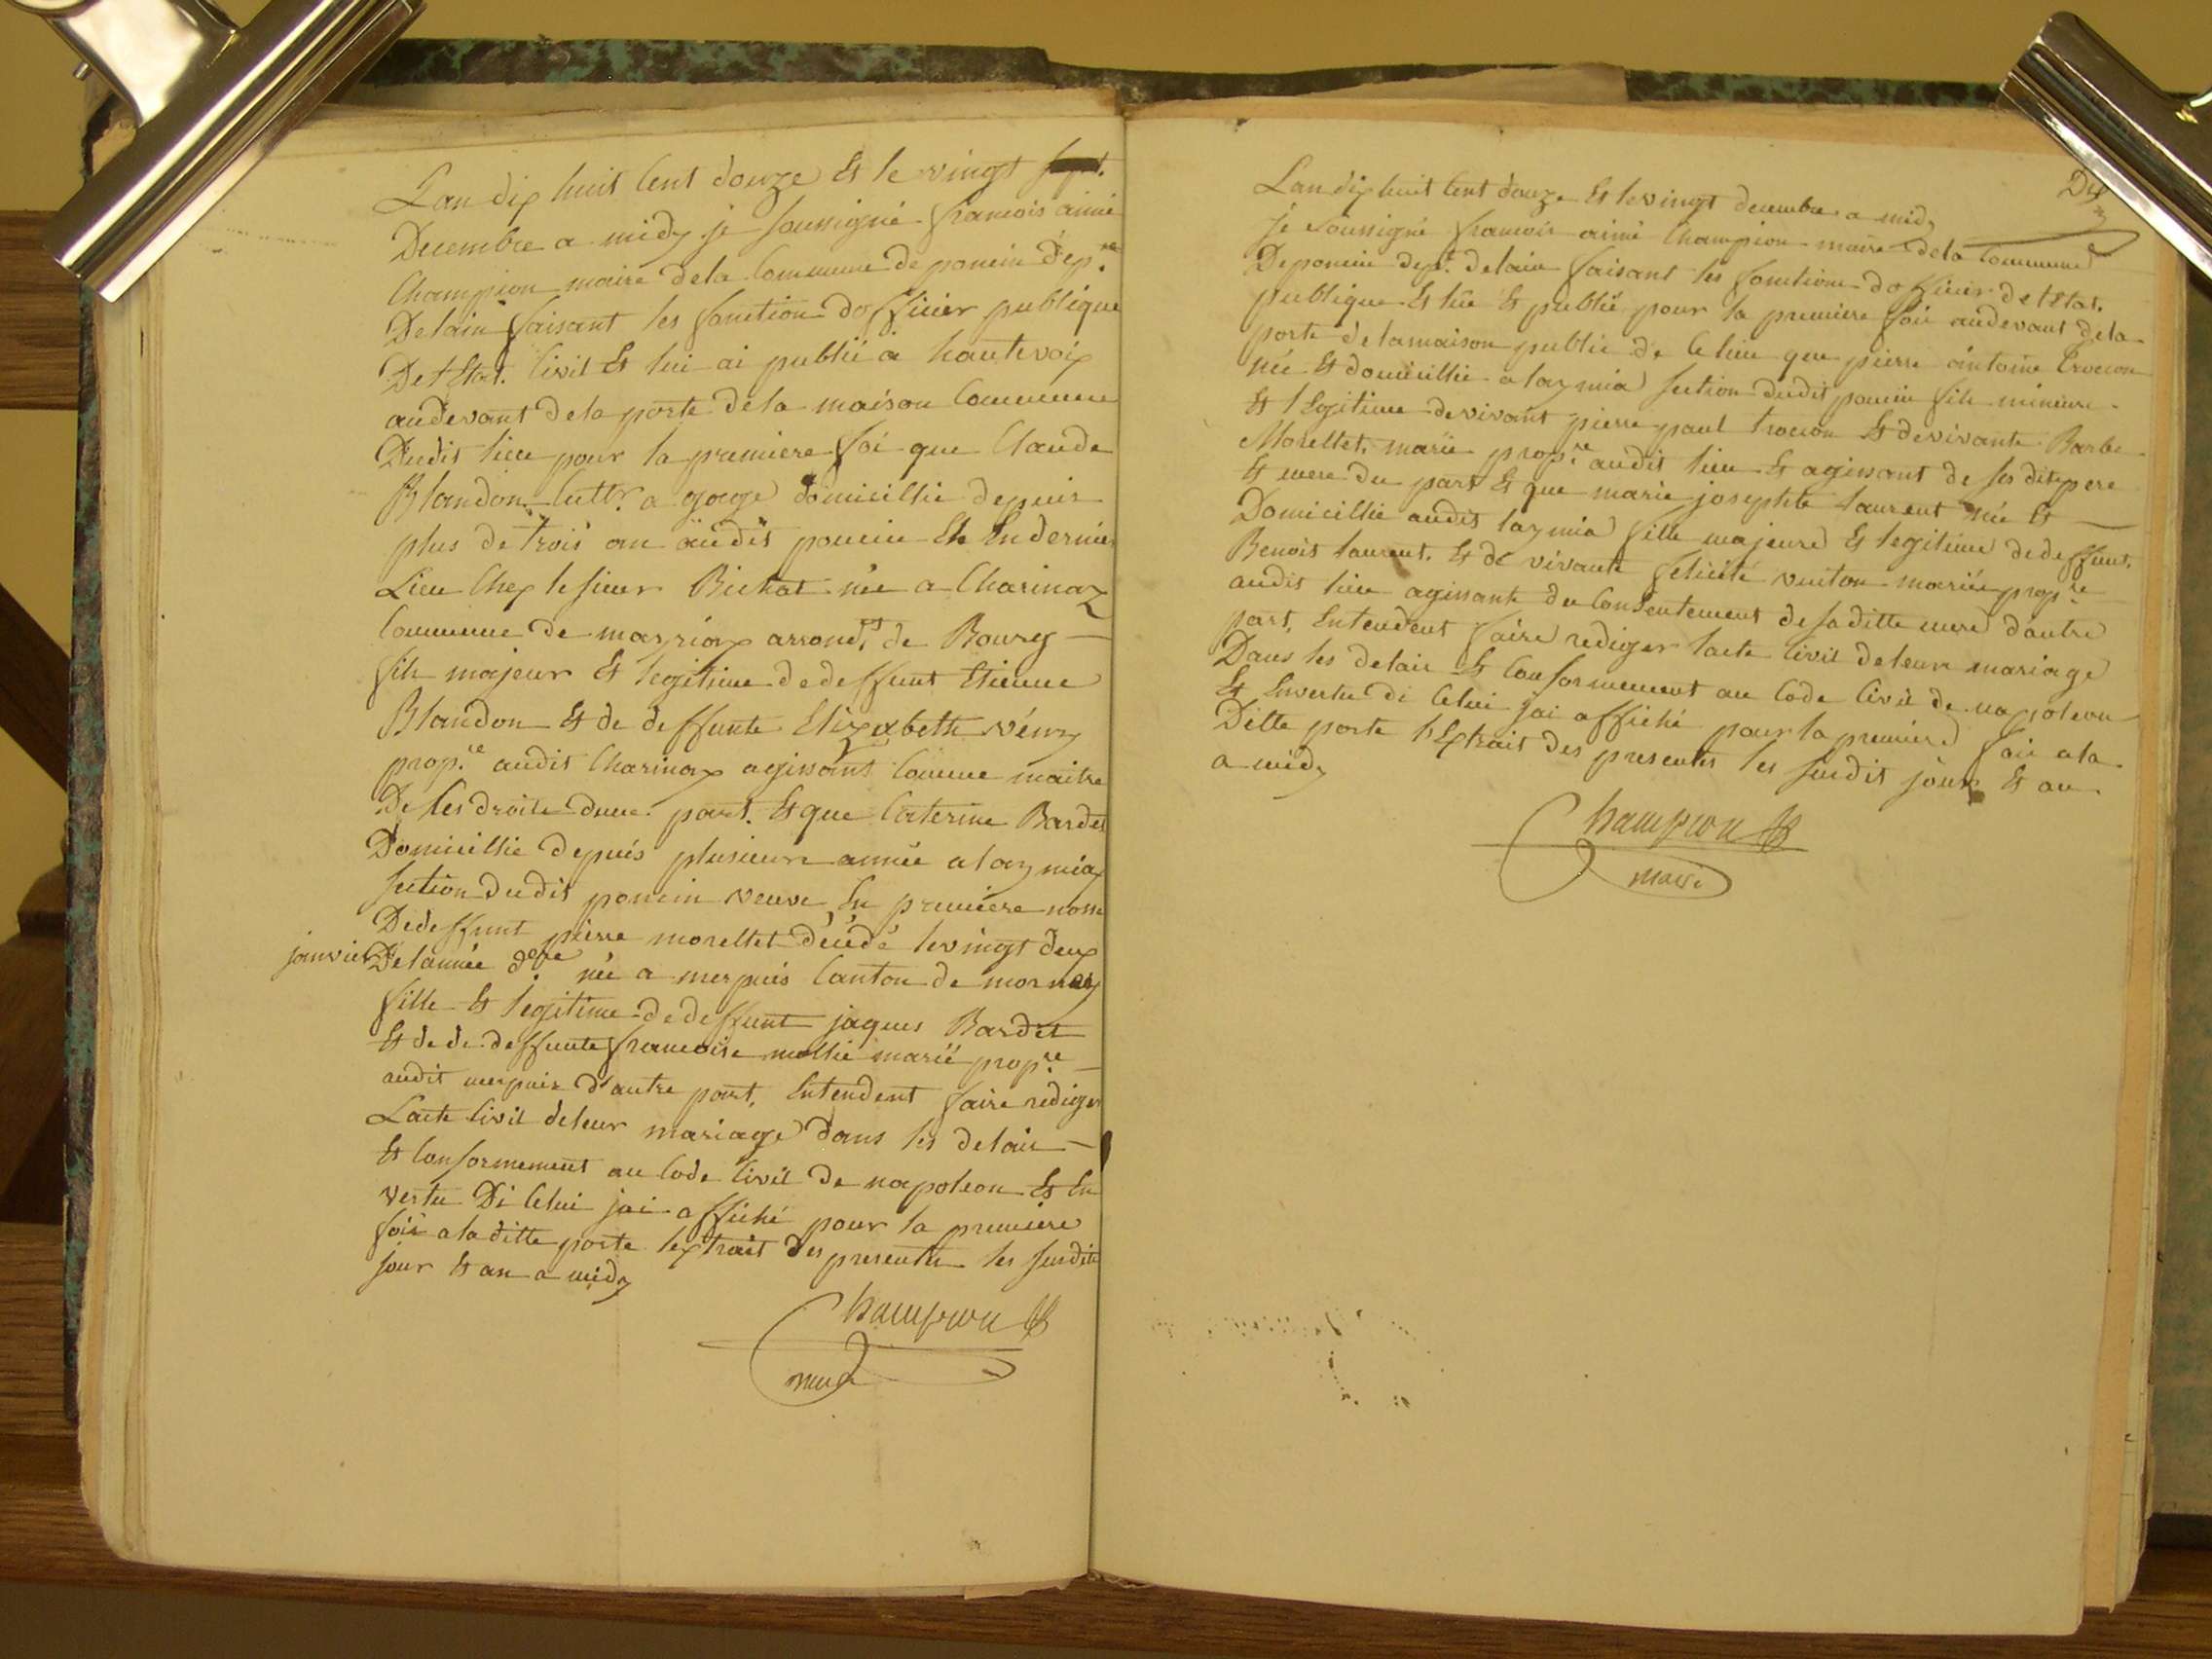 Lan dix huit Cent douze Et le vingt
Decembre a midy je soussigné francois aimé
Champion maire dela Commune de poncin dep.t
Delain faisant les fonction dofficier publique
Det Etat. Civil Et lui ai publié a hautevoix
audevant dela porte dela maison Commune
Dudit lieu pour la premiere foi que Claude
Blandon Cultr. a gage domicillié depuis
plus de trois an audit poncin Et En dernier
Lieu Chez le sieur Bichat née a Charinaz
Commune de arrond.t de Bourg
fils majeur Et legitime de deffunt Etienne
Blandon Et de deffunte Elizabeth
prop.re audit Charinaz agissant Comme maitre
De Ces droits dune part. Et que Caterine Bardet
Domicillié depuis plusieurs année a laymiaz
section dudit poncin veuve En premiere nosse
De deffunt pierre morellet décédé le vingt deux
janvier Delannée d.re née a merpuis Canton de
fille Et legitime de deffunt jaques Bardet
Et de de deffunte francoise mollié marié prop.re
audit merpuis d'autre part, Entendent faire rediger
Lacte Civil deleur mariage dans les delais
Et Conformement au Code Civil de napoleon Et En
vertu Di Celui jai affiché pour la premiere
fois a la ditte porte lextrait des presentes les susdits
jour Et an a midy
Champion
maire
Dix
Lan dix huit Cent douze Et le vingt decembre a midy
je soussigné francois aimé Champion maire dela Commune
De poncin dep.t delain faisant les fonctions dofficier det Etat.
publique Et lu Et publié pour la premiere fois audevant dela
porte de la maison public de Ce lieu que pierre antoine trocon
née Et domicillié a laymia section dudit poncin fils mineure
Et legitime devivant pierre paul trocon Et devivante Barbe
Morellet, marié prop.re audit lieu Et agissant de ses dit pere
Et mere du part Et que marie josephte Laurent née Et
Domicillié audit laymia fille majeure Et legitime de deffunt.
Benoit Laurent. Et de vivante felicité vuiton mariée prop.re
audit lieu agissante du Consentement de sa ditte mere d'autre
part, Entendent faire rediger lacte Civil deleur mariage
Dans les delais Et Conformement au Code Civil de napoleon
Et Envertu di Celui jai affiché pour la premiere fois a la
Ditte porte lExtrait des presentes les susdit jour Et an
a midy
Champion
maire